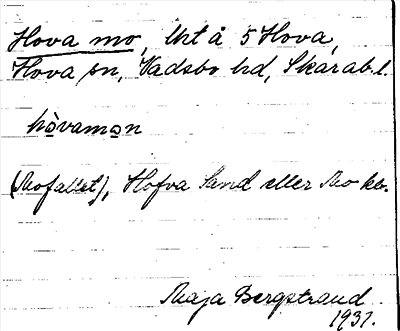 Hova mo, Urt å 5 Hova,
Hova sn, Vadsbo hd, Skarab. l.
hòvamon
(Mofallet), Hofva Sand eller Mo kb.
Maja Bergstrand
1931.